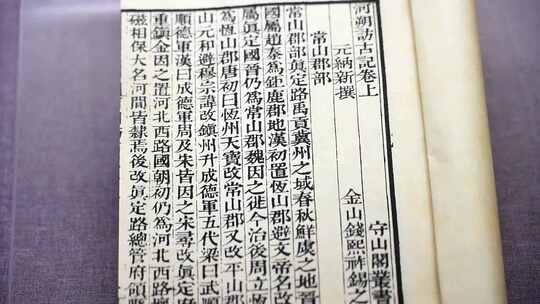 河朔訪古記卷上
守山閣叢書
元納新撰
金山錢熙祚錫之
常山郡部
常山郡部真定路禹貢冀州之域春秋鮮虞之地晉
國屬趙秦為鉅鹿郡地漢初置恆山郡避文帝名改
屬真定國晉仍為常山郡魏因之徙今治後周立
為恆山郡唐初曰恆州天寶改常山郡又改平山郡
山元和避穆宗諱改鎮州升成德軍五代梁曰武順
順德軍漢曰成德軍周及宋皆因之宋尋改真定府
重鎮金因之置河北西路國朝初仍為河北西路
磁相保大名河間皆隸焉後改真定路總管府領